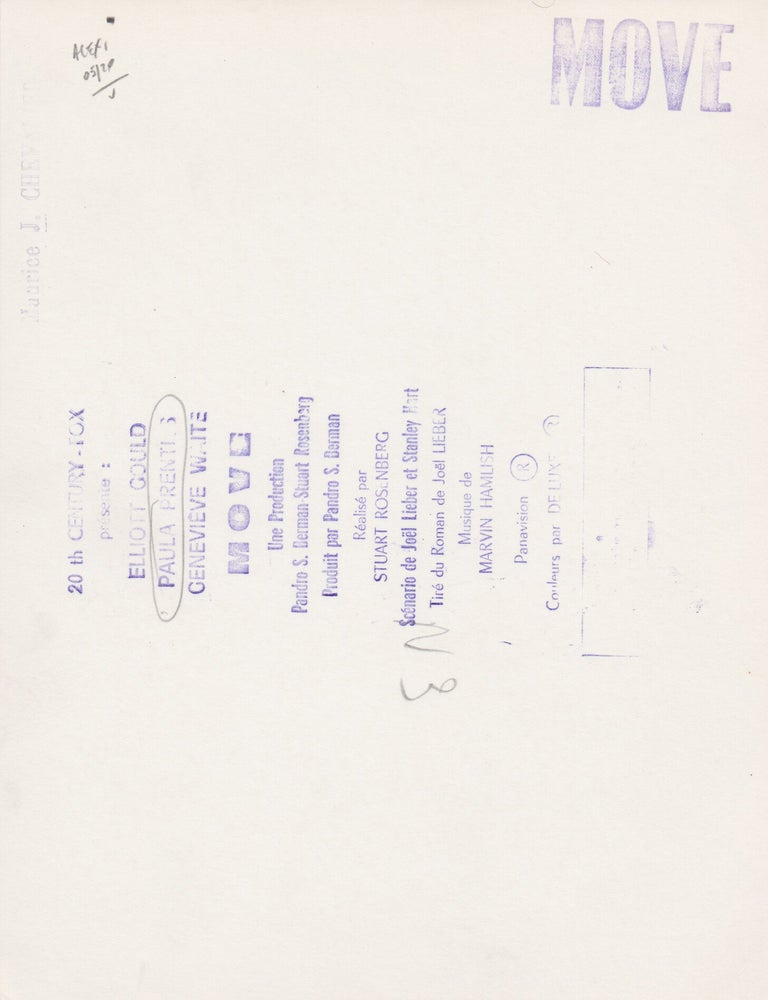 MOVE
ALEXI
05/20
Maurice J. CHEVALIER
20 th CENTURY-FOX
présente :
ELLIOTT GOULD
PAULA PRENTISS
GENEVIÈVE WAITE
MOVE
Une Production
Pandro S. Berman-Stuart Rosenberg
Produit par Pandro S. Berman
Réalisé par
STUART ROSENBERG
Scénario de Joël Lieber et Stanley Hart
Tiré du Roman de Joël LIEBER
Musique de
MARVIN HAMLISH
Panavision R
Couleurs par DE LUXE R
N 3